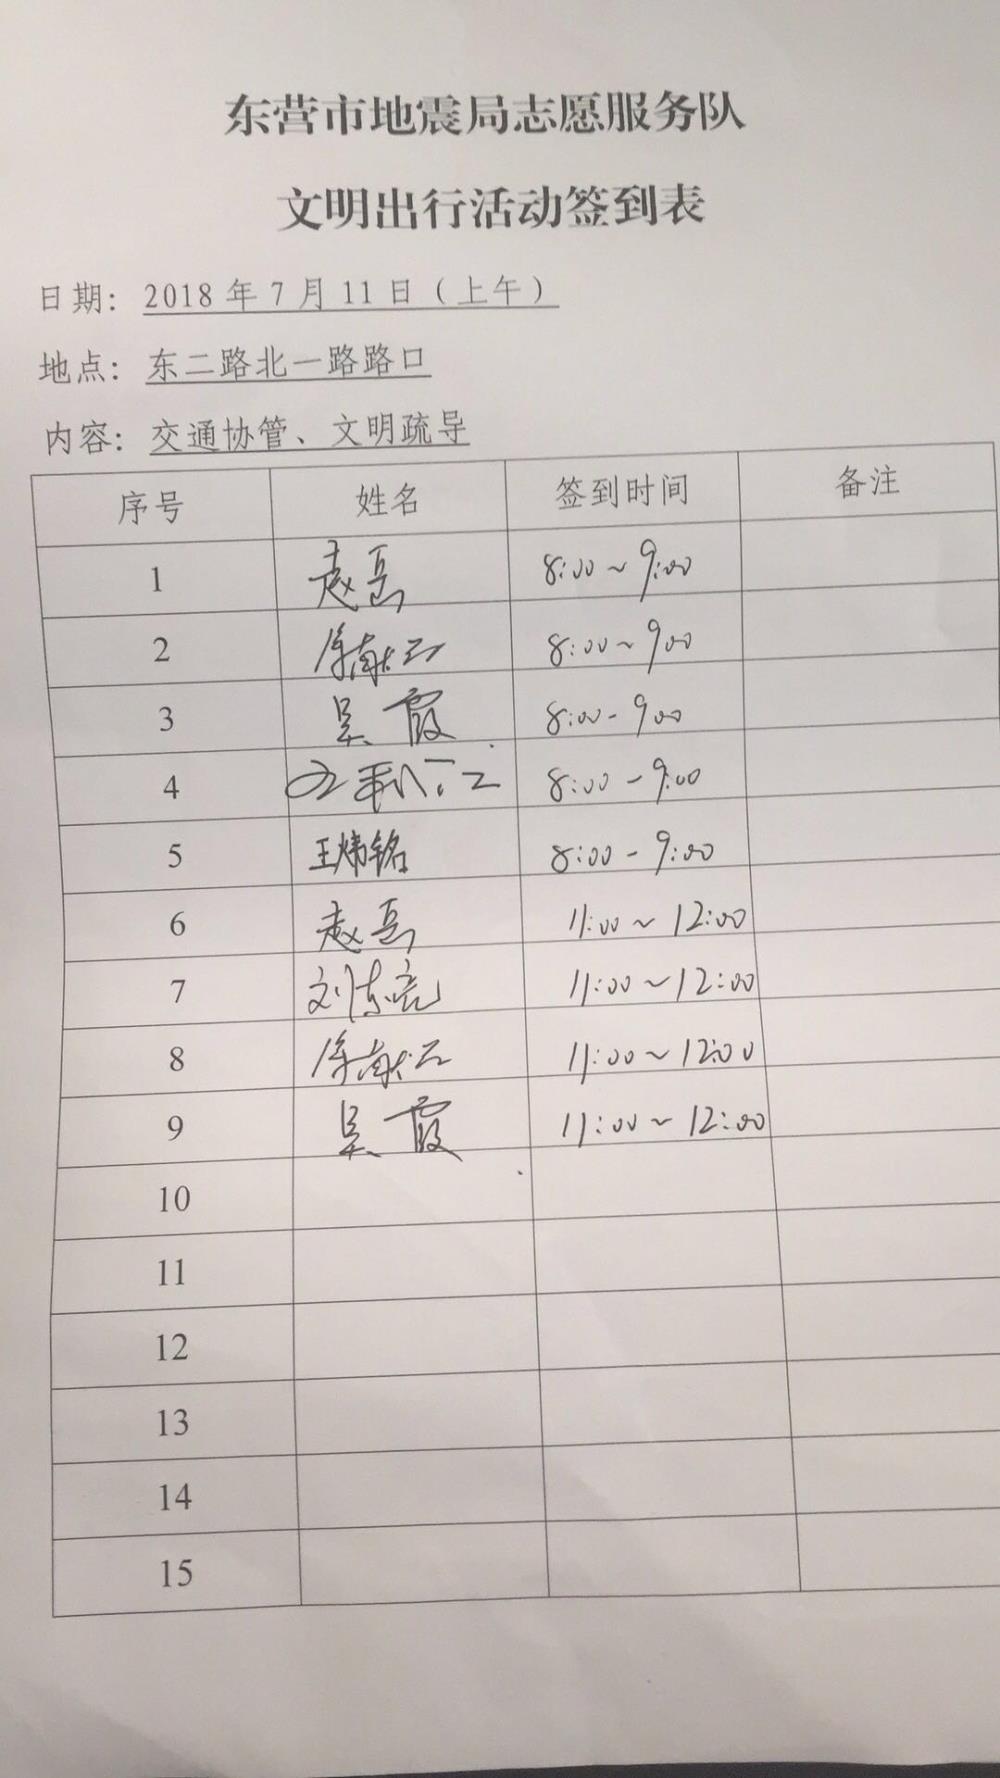 东营市地震局志愿服务队
文明出行活动签到表
日期：2018年7月11日（上午）
地点：东二路北一路路口
内容：交通协管、文明疏导
序号 姓名 签到时间 备注
1 赵磊 8:00~9:00
2 徐献云 8:00~900
3 吴霞 8:00-900
4 8:00-9:00
5 王炜铭 8:00-9:00
6 赵磊 11:00~12:00
7 刘东亮 11:00~12:00
8 徐献云 11:00~12:00
9 吴霞 11:00~12:00
10
11
12
13
14
15